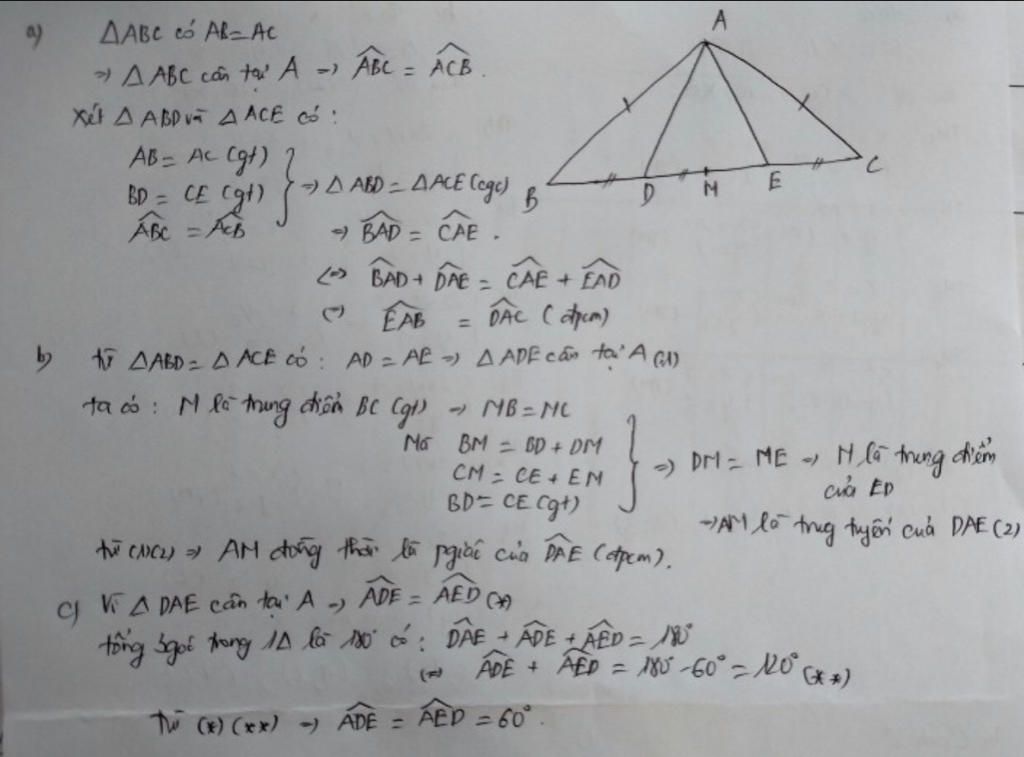 a) △ABC có AB=AC
⇒ △ABC cân tại A ⇒ ∠ABC = ∠ACB.
Xét △ABD và △ACE có:
AB = AC (gt)
BD = CE (gt) } ⇒ △ABD = △ACE (cgc)
∠ABC = ∠ACB ⇒ ∠BAD = ∠CAE.
⇔ ∠BAD + ∠DAE = ∠CAE + ∠EAD
⇔ ∠EAB = ∠DAC (đpcm)
A
B D M E C
b) từ △ABD = △ACE có: AD = AE ⇒ △ADE cân tại A (1)
ta có: M là trung điểm BC (gt) ⇒ MB = MC
Mà BM = BD + DM
CM = CE + EM
BD = CE (gt) } ⇒ DM = ME ⇒ M là trung điểm
của ED
⇒ AM là trug tuyến cuả DAE (2)
từ (1)(2) ⇒ AM đồng thời là pgiác của ∠DAE (đpcm).
c) Vì △DAE cân tại A ⇒ ∠ADE = ∠AED (*)
tổng 3góc trong 1△ là 180° có: ∠DAE + ∠ADE + ∠AED = 180°
⇔ ∠ADE + ∠AED = 180° - 60° = 120° (**)
Từ (*) (**) ⇒ ∠ADE = ∠AED = 60°.